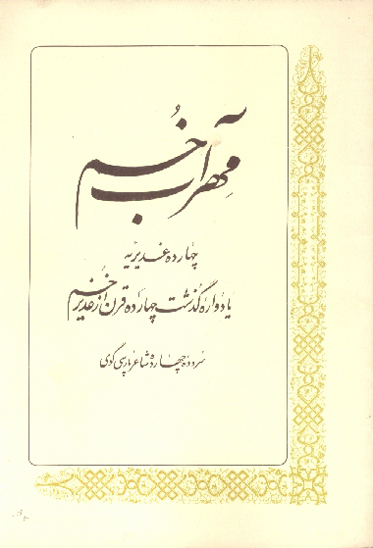 مهر آب خُم
چهارده غدیریه
یادواره گذشت چهارده قرن از غدیر خُم
سروده چهارده شاعر پارسی گوی